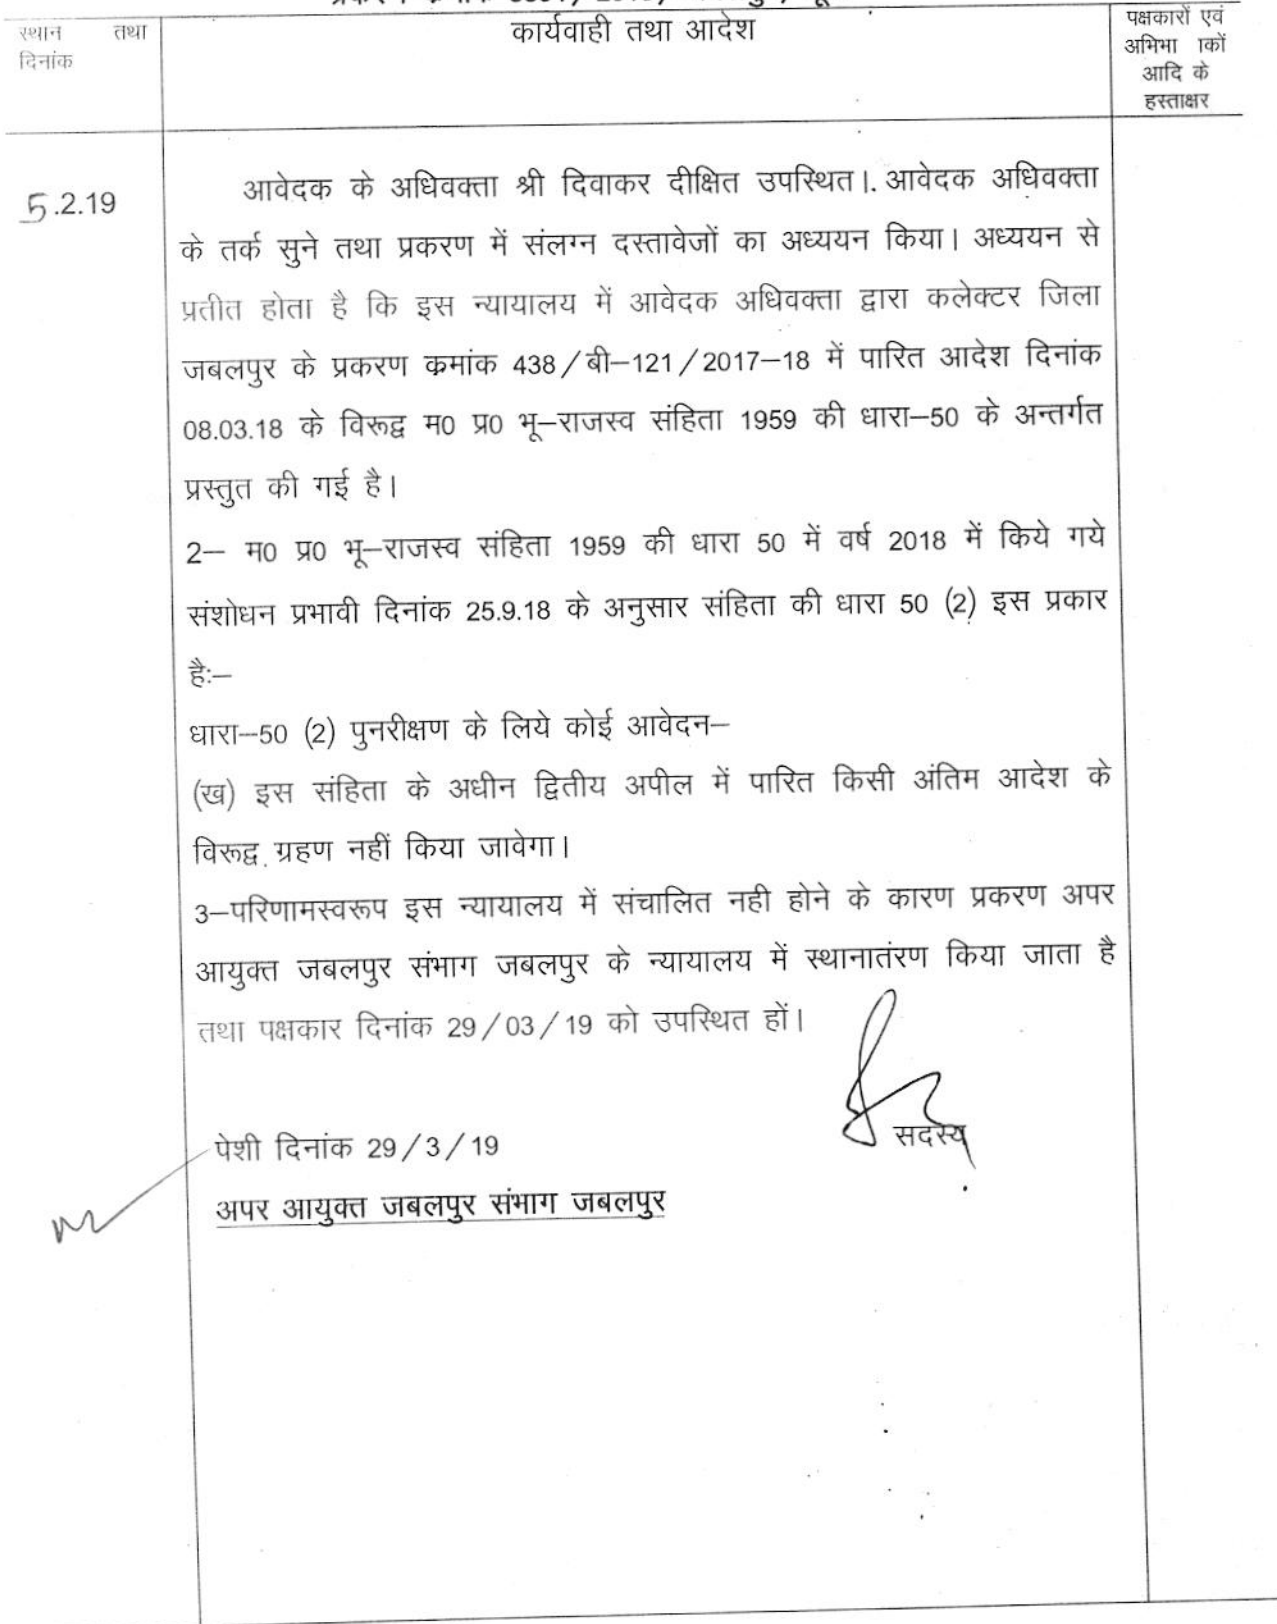 स्थान तथा
दिनांक
कार्यवाही तथा आदेश
पक्षकारों एवं
अभिभा ाकों
आदि के
हस्ताक्षर
5.2.19
आवेदक के अधिवक्ता श्री दिवाकर दीक्षित उपस्थित। आवेदक अधिवक्ता
के तर्क सुने तथा प्रकरण में संलग्न दस्तावेजों का अध्ययन किया। अध्ययन से
प्रतीत होता है कि इस न्यायालय में आवेदक अधिवक्ता द्वारा कलेक्टर जिला
जबलपुर के प्रकरण कमांक 438/बी–121/2017–18 में पारित आदेश दिनांक
08.03.18 के विरूद्व म0 प्र0 भू–राजस्व संहिता 1959 की धारा–50 के अन्तर्गत
प्रस्तुत की गई है।
2– म0 प्र0 भू–राजस्व संहिता 1959 की धारा 50 में वर्ष 2018 में किये गये
संशोधन प्रभावी दिनांक 25.9.18 के अनुसार संहिता की धारा 50 (2) इस प्रकार
है:–
धारा–50 (2) पुनरीक्षण के लिये कोई आवेदन–
(ख) इस संहिता के अधीन द्वितीय अपील में पारित किसी अंतिम आदेश के
विरूद्व ग्रहण नहीं किया जावेगा।
3–परिणामस्वरूप इस न्यायालय में संचालित नही होने के कारण प्रकरण अपर
आयुक्त जबलपुर संभाग जबलपुर के न्यायालय में स्थानातंरण किया जाता है
तथा पक्षकार दिनांक 29/03/19 को उपस्थित हों।
सदस्य
पेशी दिनांक 29/3/19
अपर आयुक्त जबलपुर संभाग जबलपुर